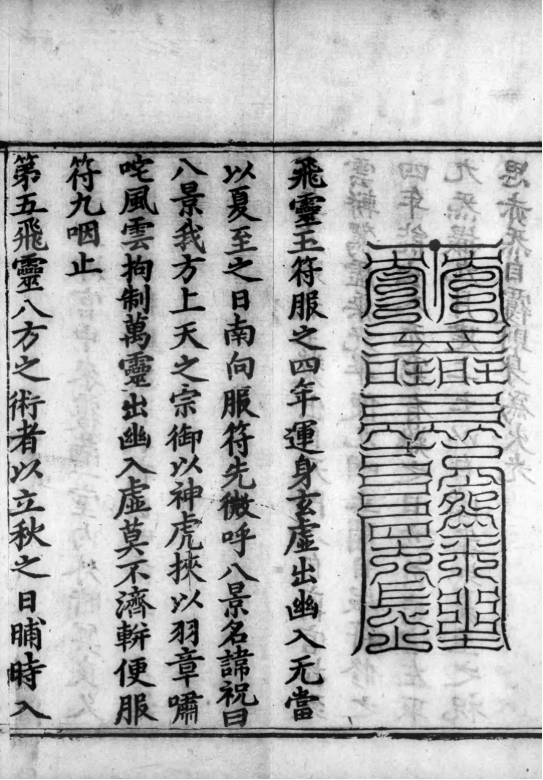 飛靈玉符服之四年運身玄虛出幽入无當
以夏至之日南向服符先微呼八景名諱祝曰
八景我方上天之宗御以神虎挾以羽章嘯
咤風雲拘制萬靈出幽入虛莫不濟軿便服
符九咽止
第五飛靈八方之術者以立秋之日晡時入